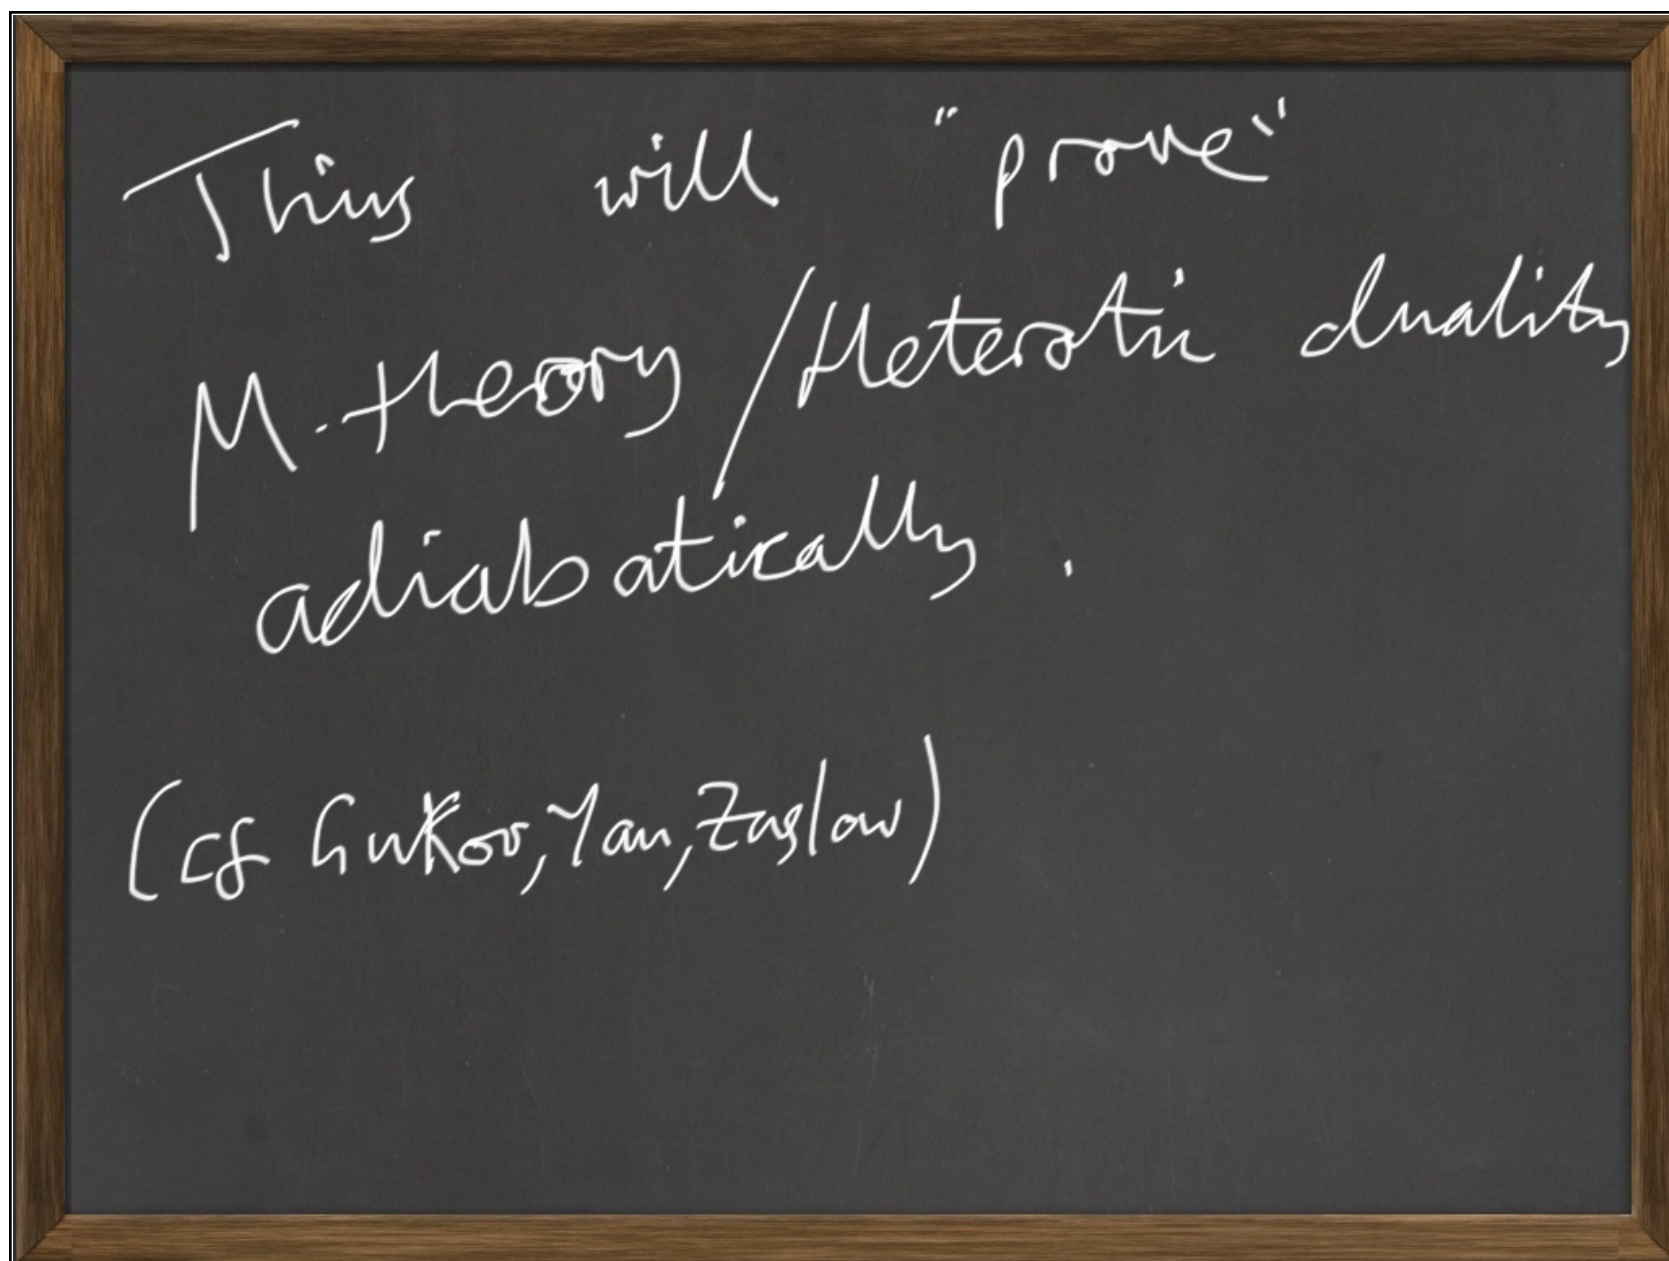 This will "prove"
M-theory/Heterotic duality
adiabatically.
(cf Gukov, Yau, Zaslow)